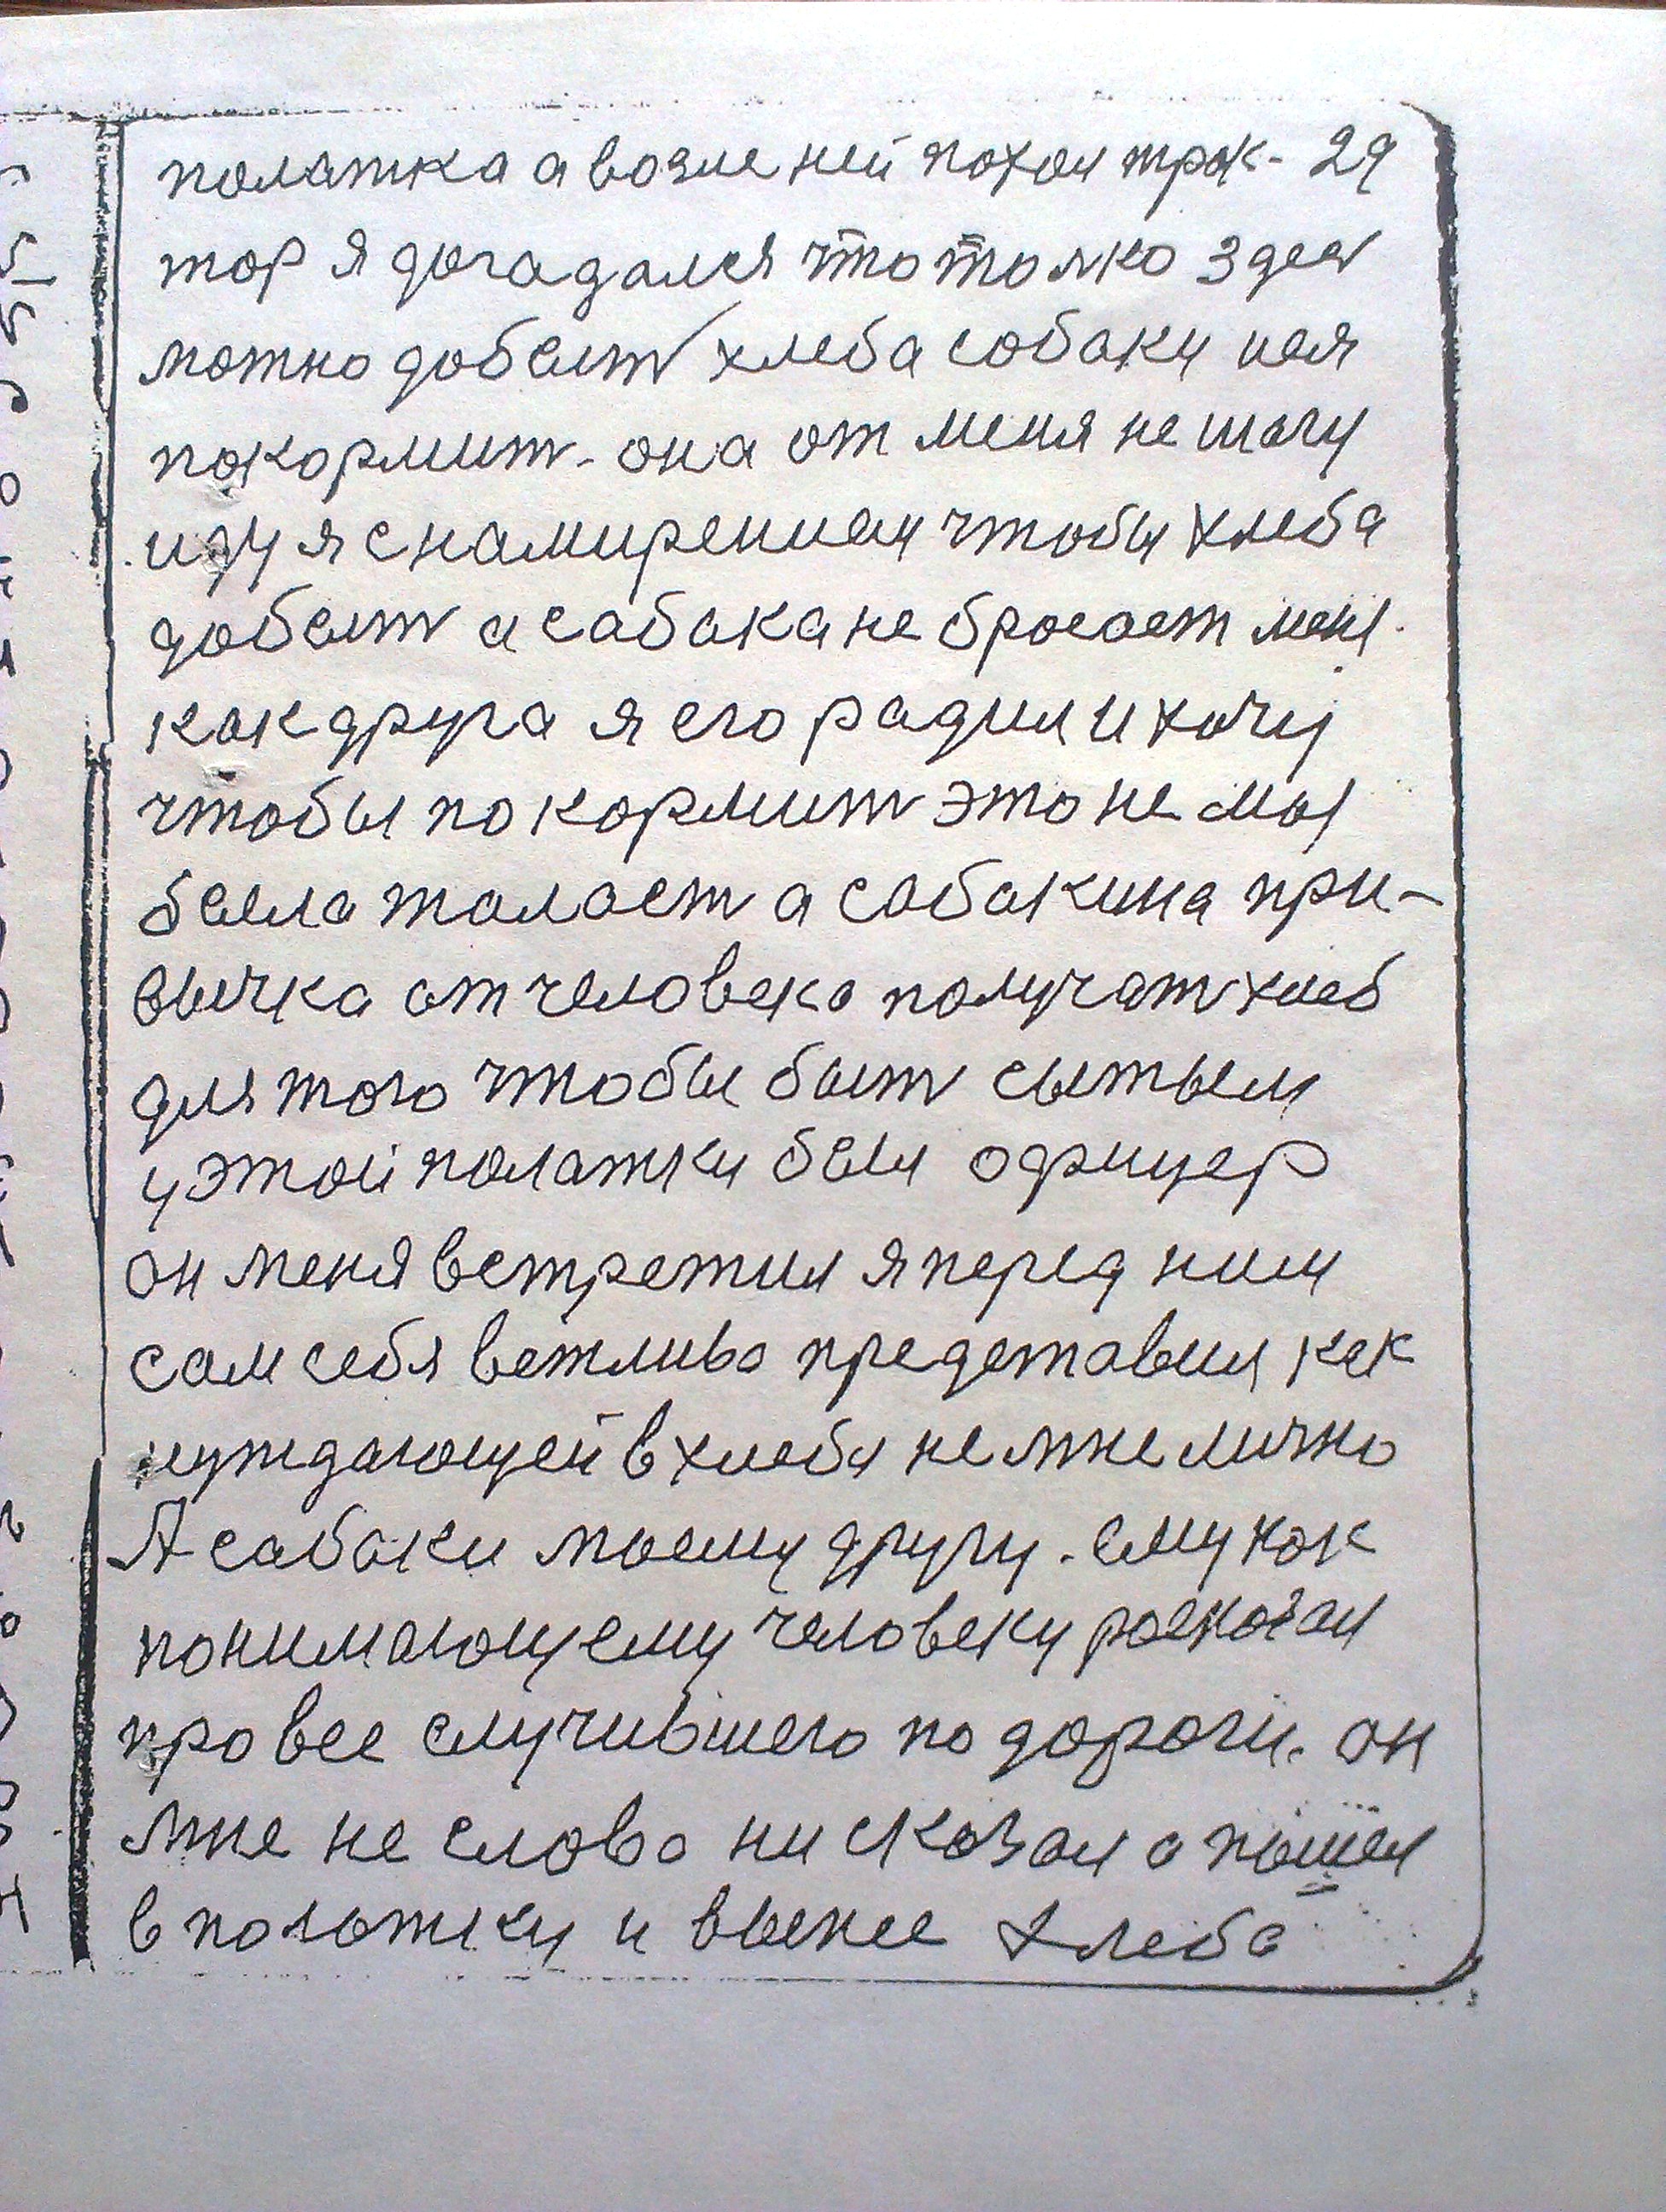 полатка а возле ней похал трак- 29
тор я догадался что толко здес
можно добыт хлеба собаку ися
покормит. она от меня не шагу
иду я с намирением чтобы хлеба
добыт а сабака не бросает меня.
как друга я его радил и хочу
чтобы покормит это не моя
была жалост а собакина при-
вычка от человека получат хлеб
для того чтобы быт сытым
у этой полатки был офицер
он меня встретил я перед ним
сам себя вежливо представил как
нуждающей в хлебя не мне лично
А сабаки моему другу. ему как
понимающему человеку расказал
про все случившего по дороги. он
мне не слова ни сказал а пошел
в полатку и вынес хлеба